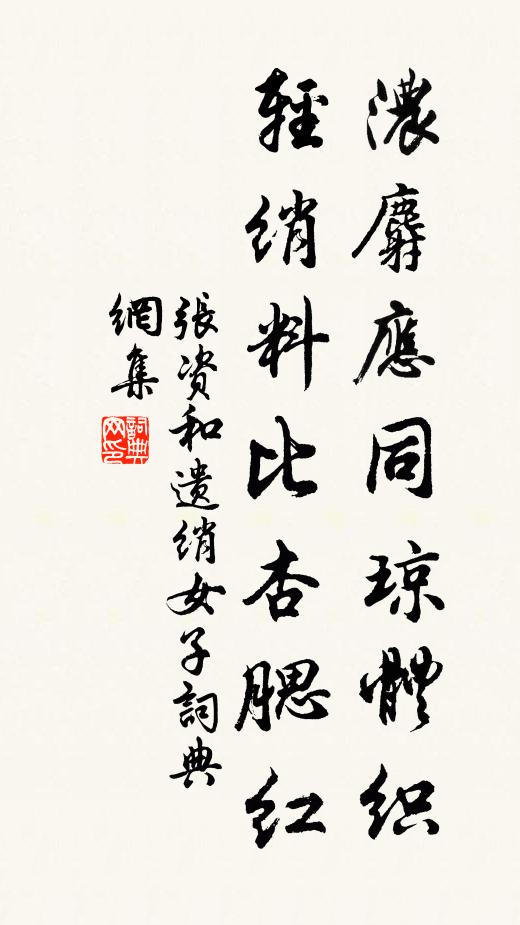 濃麝應同瓊體織
輕綃料比杏腮紅
張資和遺綃女子詞典
網集
詞典網印